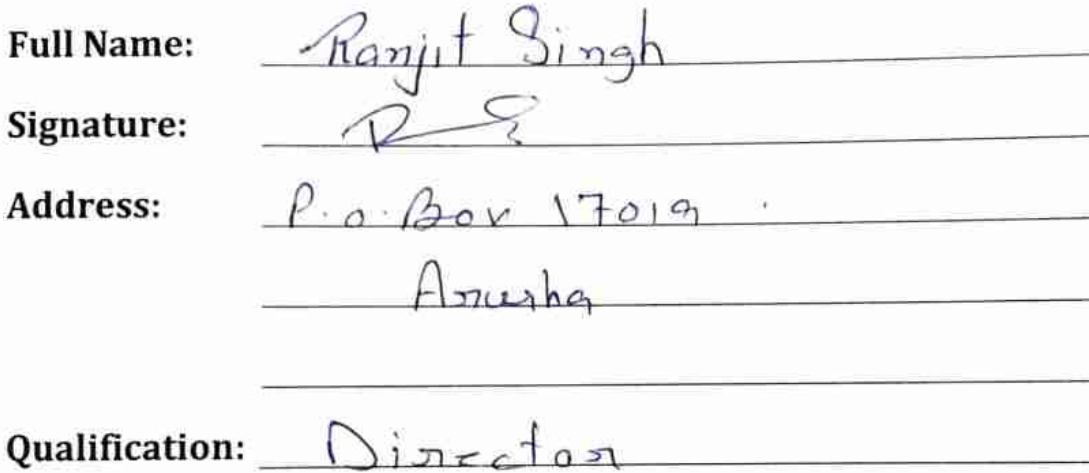 Full Name: Ranjit Singh
Signature:
Address: P.O. Box 17019
Arusha
Qualification: Director